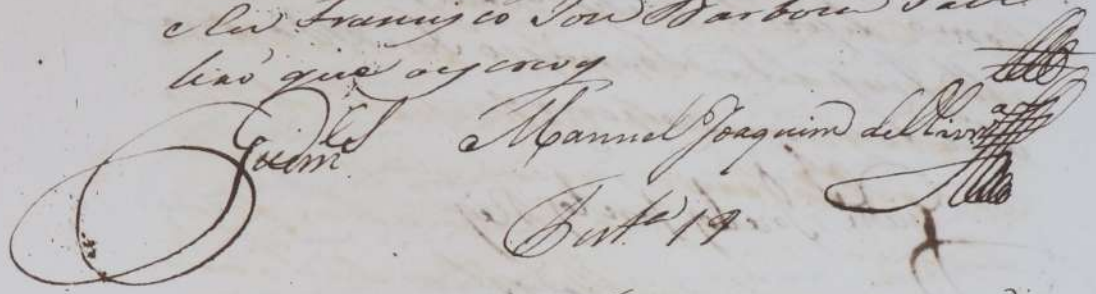 Eu Francisco Jose Barboza Tabe
liaõ que o escrevy
Guim.es Manuel Joaquim de Olivr.a
Test.a 19